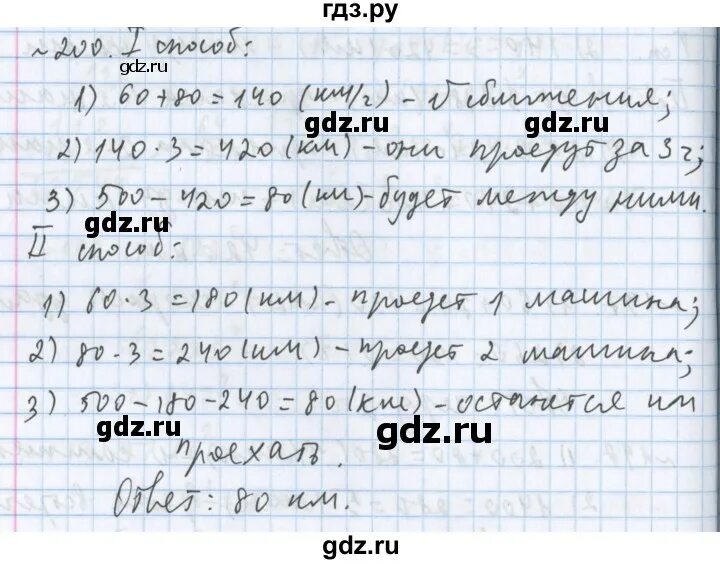 гдз.ру
№200. I способ:
gdz.ru
1) 60+80=140 (км/г) - V сближения;
gdz.ru
gdz.ru
2) 140·3=420 (км) - они проедут за 3 г;
3) 500-420=80 (км) - будет между ними.
gdz.ru
gdz.ru
II способ:
1) 60·3=180 (км) - проедет 1 машина;
gdz.ru
gdz.ru
2) 80·3=240 (км) - проедет 2 машина;
3) 500-180-240=80 (км) - останется им
gdz.ru
gdz.ru
проехать.
Ответ: 80 км.
gdz.ru
gdz.ru